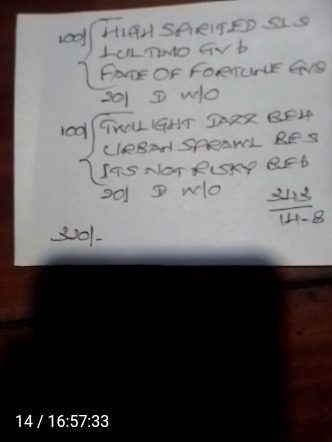 100/ HIGH SPIRITED SLS
LULTIMO GV6
FATE OF FORTUNE GV8
20/ D W/O
100/ TWILIGHT JAZZ BE4
URBAN SPRAWL BE5
ITS NOT RISKY BE6
20/ D W/O
14-8
320/-
14 / 16:57:33